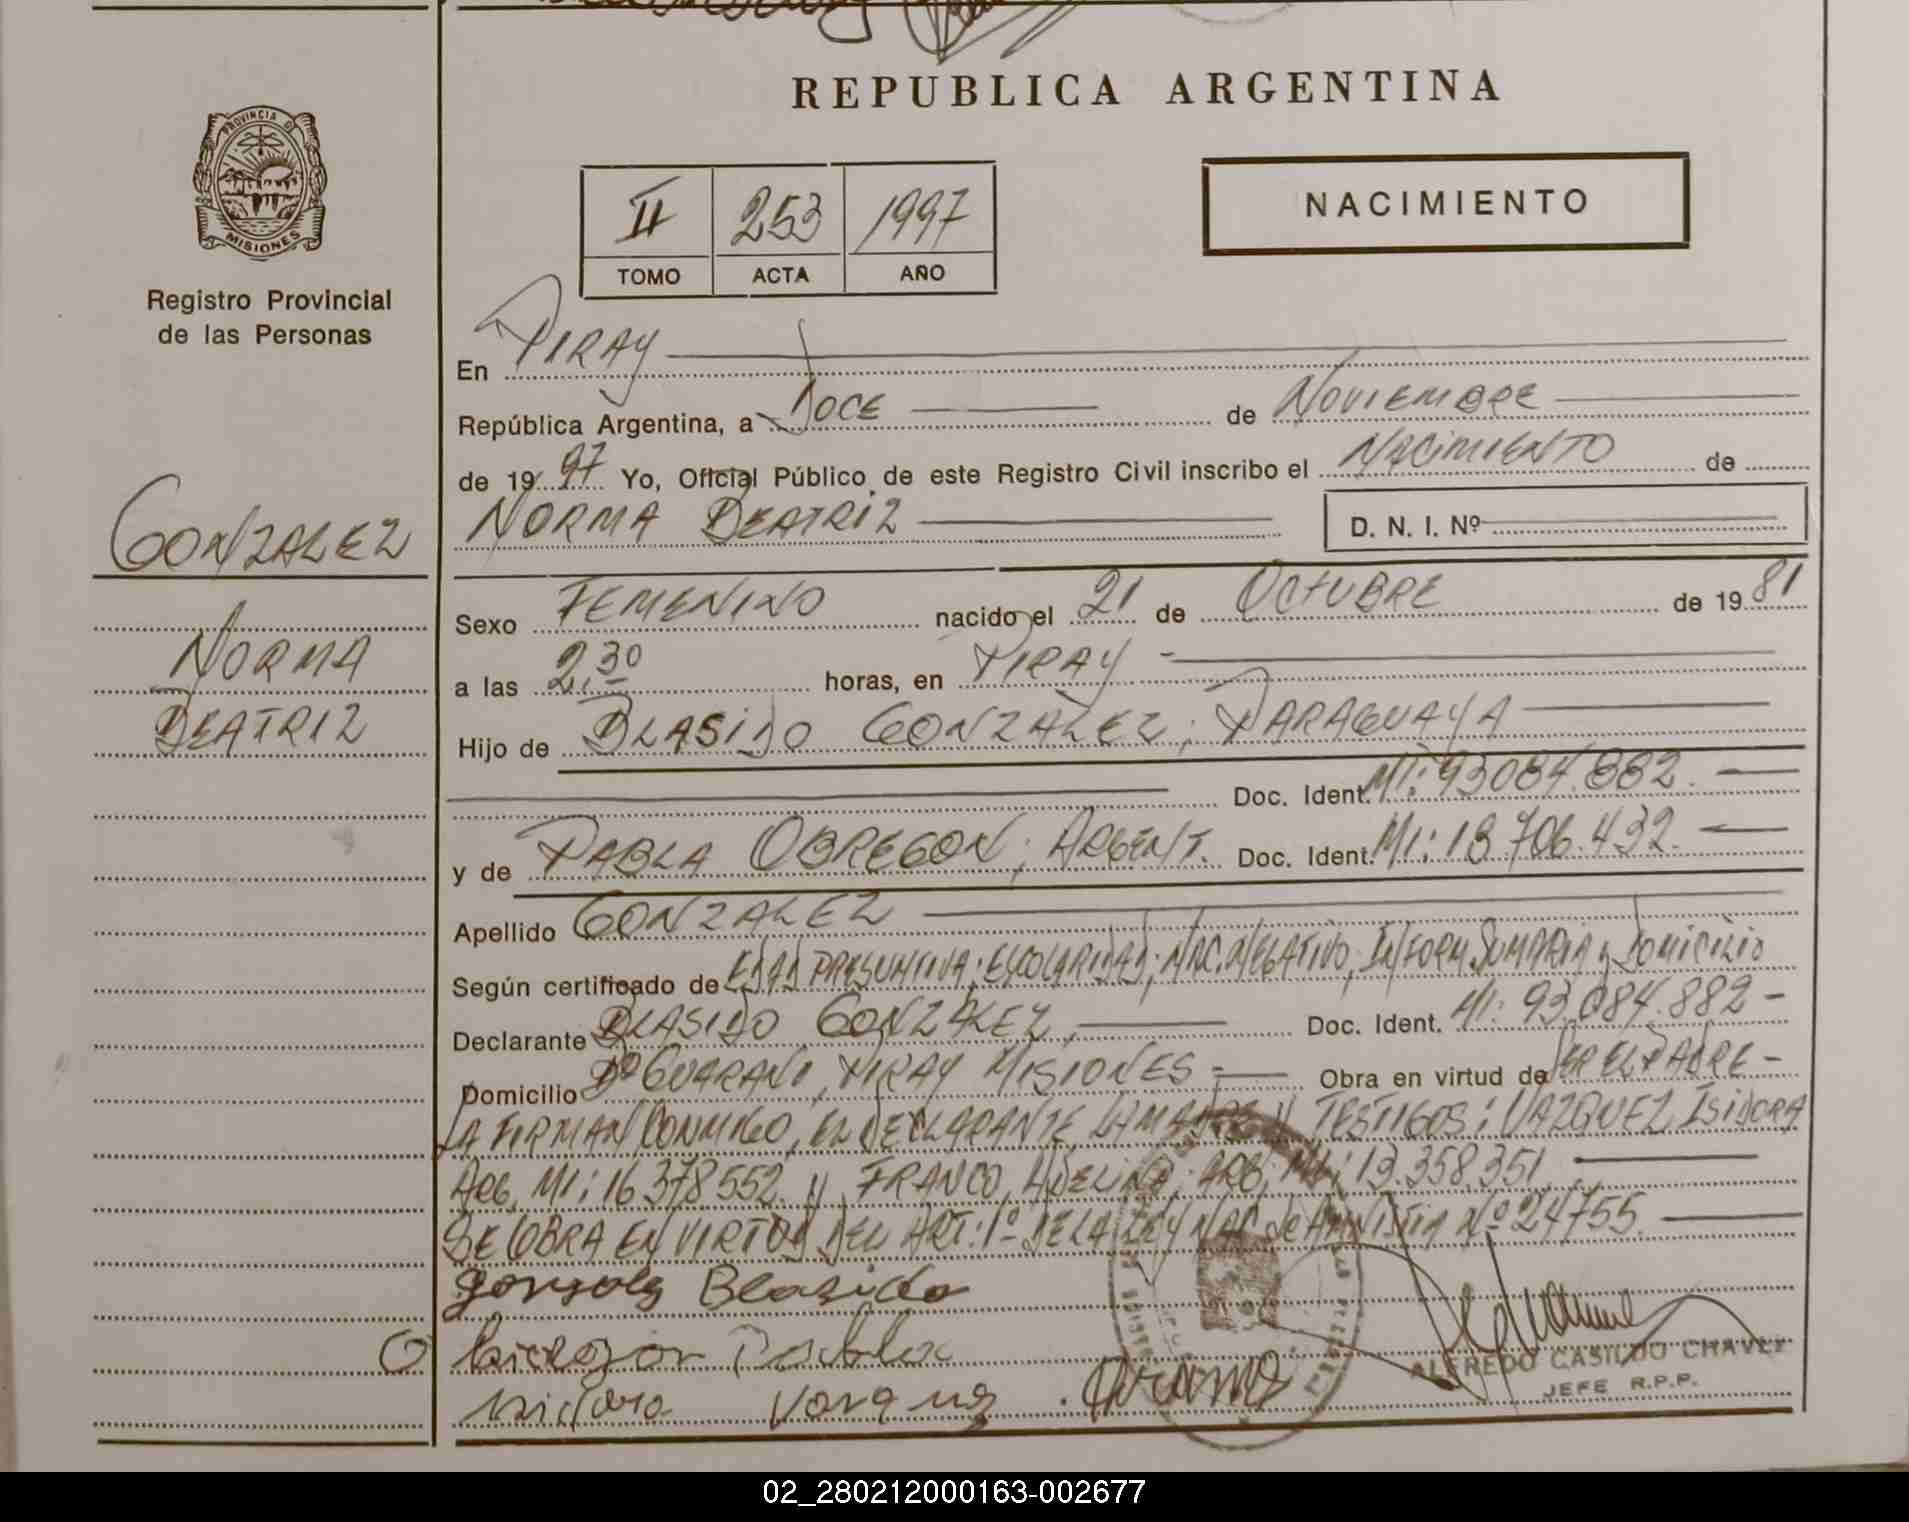 REPUBLICA ARGENTINA
PROVINCIA DE
MISIONES
Registro Provincial
de las Personas
II 253 1997
TOMO ACTA AÑO
NACIMIENTO
GONZALEZ
NORMA
BEATRIZ
En PIRAY
República Argentina, a DOCE de NOVIEMBRE
de 1997 Yo, Oficial Público de este Registro Civil inscribo el NACIMIENTO de
NORMA BEATRIZ D. N. I. Nº
Sexo FEMENINO nacido el 21 de OCTUBRE de 1981
a las 2,30 horas, en PIRAY -
Hijo de BLASIDO GONZALEZ; PARAGUAYA
Doc. Ident. MI: 93084.882.
y de PABLA OBREGON; ARGENT. Doc. Ident. MI: 18.706.432.
Apellido GONZALEZ
Según certificado de EDAD PRESUNTIVA; ESCOLARIDAD; NAC. NEGATIVO; INFORM. SUMARIA y DOMICILIO
Declarante BLASIDO GONZALEZ, Doc. Ident. MI: 93.084.882 -
Domicilio Bº GUARANI, PIRAY MISIONES - Obra en virtud de SER EL PADRE -
LA FIRMAN CONMIGO, EL DECLARANTE LA MADRE y TESTIGOS: VAZQUEZ ISIDORA
ARG, MI: 16.378.552. y FRANCO, ADELINA; ARG; MI: 13.358.351,
SE COBRA EN VIRTUD DEL ART: 1º DE LA LEY NAC. de AMNISTIA Nº 24755.
gonzalez Blasido
Pabla
Isidora
ALFREDO CASILDO CHAVEZ
JEFE R.P.P.
02_280212000163-002677